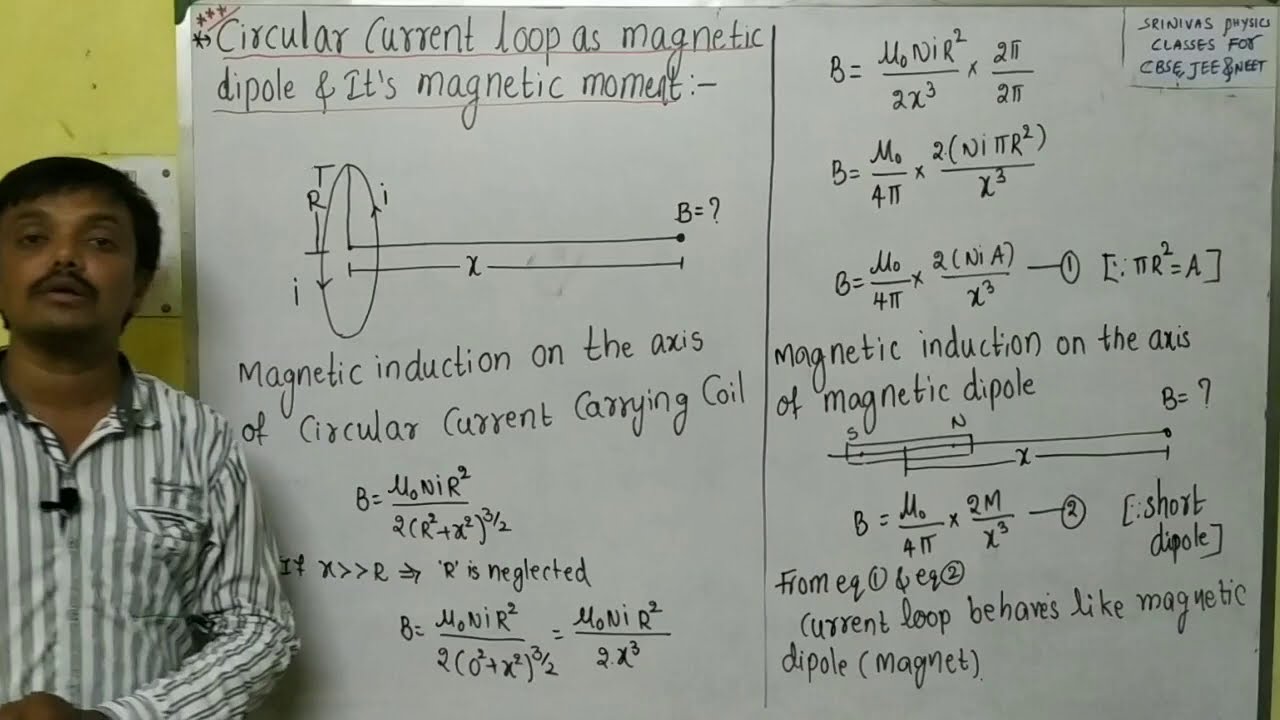 ***
* Circular Current loop as magnetic
dipole & It's magnetic moment:-
R
i
i
x
B=?
Magnetic induction on the axis
of Circular Current Carrying Coil
B= μ₀NiR² / 2(R²+x²)^3/2
If x>>R ⇒ 'R' is neglected
B= μ₀NiR² / 2(0²+x²)^3/2 = μ₀NiR² / 2.x³
SRINIVAS PHYSICS
CLASSES FOR
CBSE, JEE & NEET
B= μ₀NiR² / 2x³ × 2π / 2π
B= μ₀ / 4π × 2(NiπR²) / x³
B= μ₀ / 4π × 2(NiA) / x³ —① [∵ πR²=A]
Magnetic induction on the axis
of magnetic dipole
B= ?
S
N
x
B = μ₀ / 4π × 2M / x³ —② [∵short
dipole]
From eq ① & eq ②
Current loop behaves like magnetic
dipole (magnet)